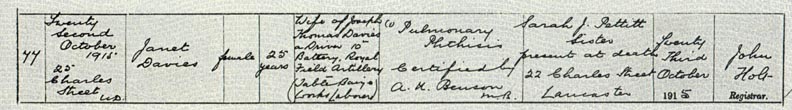 77
Twenty
Second
October
1915
25
Charles
Street U.D.
Janet
Davies
female
25
years
Wife of Joseph
Thomas Davies
a Driver 15
Battery, Royal
Field Artillery
(Table Baize
Works Laborer)
(1) Pulmonary
Phthisis
Certified by
A. H. Benson
M.B.
Sarah J. Pettitt
Sister
present at death
22 Charles Street
Lancaster
Twenty
Third
October
1915
John
Holt
Registrar.